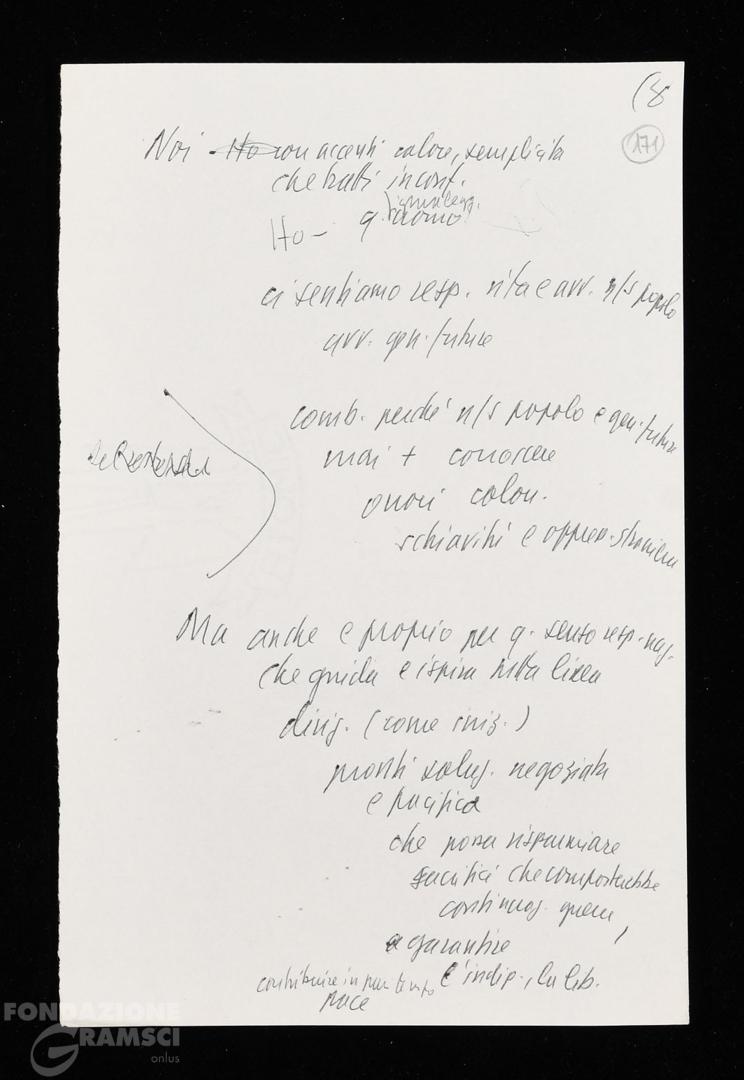 (8
171
Noi ~~Ho~~ con accenti calore, semplicità
che tratti incont.
Ho – q. uomo
ci sentiamo resp. vita e avv. n/s popolo
avv. gen. future
comb. perché n/s popolo e gen. future
mai + conoscere
orrori colon.
schiavitù e oppress. straniera
Ma anche e proprio per q. senso resp. naz.
che guida e ispira tutta linea
dirig. (come iniz.)
pronti soluz. negoziata
e pacifica
che possa risparmiare
sacrifici che comporterebbe
continuaz. guerra,
a garantire
l'indip., la lib.
contribuire in pari tempo
pace
FONDAZIONE
GRAMSCI
onlus